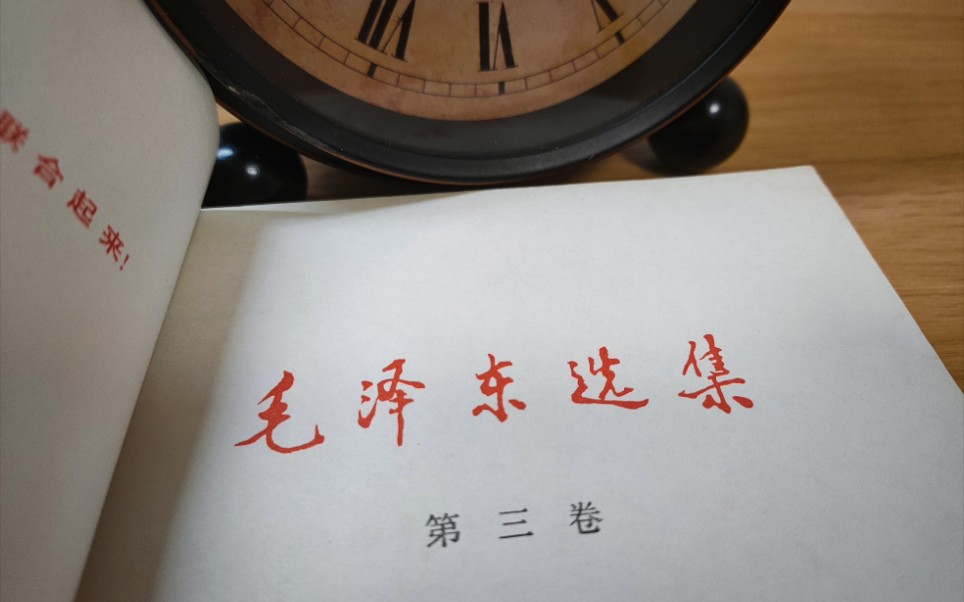 联合起来!
毛泽东选集
第三卷